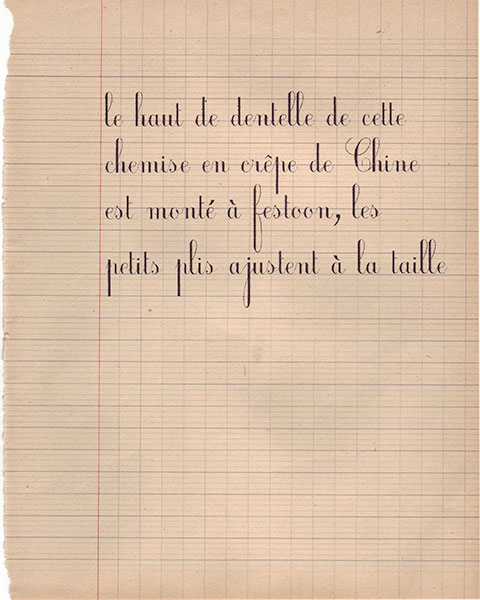 le haut de dentelle de cette
chemise en crêpe de Chine
est monté à festoon, les
petits plis ajustent à la taille